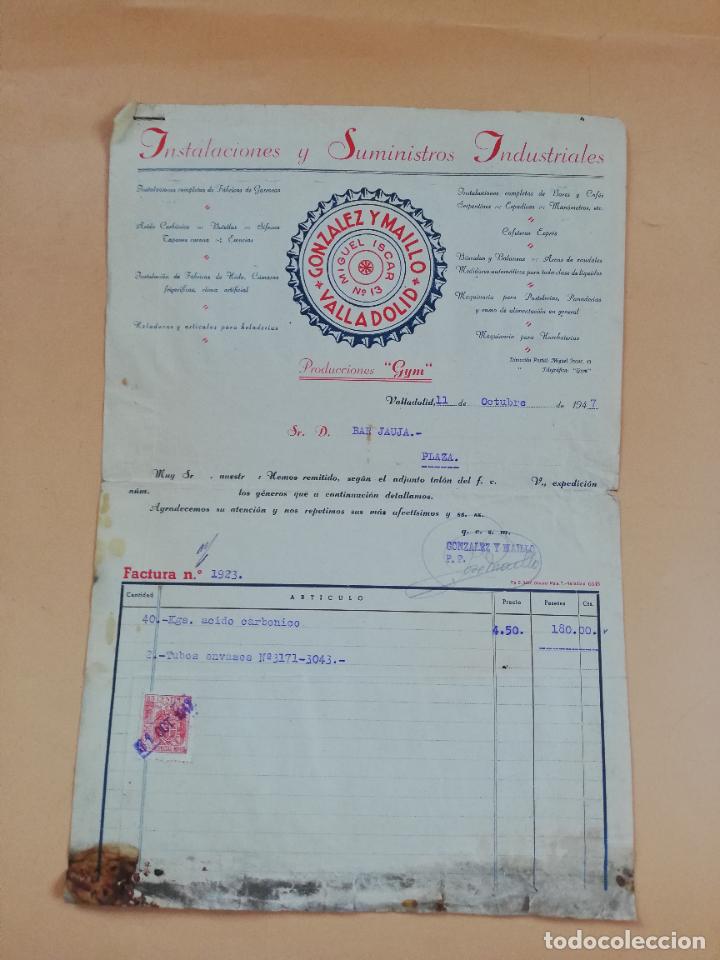 Instalaciones y Suministros Industriales
Instalaciones completas de Fábricas de Gaseosas
Acido Carbónico -:- Botellas -:- Sifones
Tapones corona -:- Esencias
Instalación de Fábricas de Hielo, Cámaras
frigoríficas, clima artificial
Heladoras y artículos para heladerías
GONZALEZ Y MAILLO
MIGUEL ISCAR
Nº 13
VALLADOLID
Producciones "Gym"
Instalaciones completas de Bares y Cafés
Serpentines -:- Espadines -:- Manómetros, etc.
Cafeteras Exprés
Básculas y Balanzas -:- Arcas de caudales
Medidoras automáticas para toda clase de líquidos
Maquinaria para Pastelerías, Panaderías
y ramo de alimentación en general
Maquinaria para Horchaterías
Dirección Postal: Miguel Iscar, 13
" Telegráfica: "Gym"
Valladolid, 11 de Octubre de 1947
Sr. D. BAR JAUJA.-
PLAZA.
Muy Sr. nuestr : Hemos remitido, según el adjunto talón del f. c. V., expedición
núm. los géneros que a continuación detallamos.
Agradecemos su atención y nos repetimos sus más afectísimos y ss. ss.
q. e. s. m.
GONZALEZ Y MAILLO
P. P.
Factura n.º 1923.
Cantidad ARTÍCULO Precio Pesetas Cts.
40.-Kgs. acido carbonico 4.50. 180.00.
2.-Tubos envases Nº3171-3043.-
11 OCT 947
ESPECIAL MOVIL
todocoleccion
todocoleccion.net